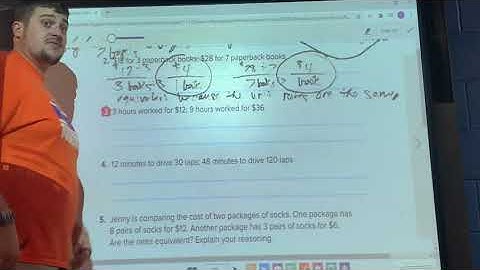 2. $12 for 3 paperback books; $28 for 7 paperback books
$12 ÷ 3 $4 $28 ÷ 7 $4
3 books 1 book 7 books 1 book
equivalent because the unit rates are the same
3 3 hours worked for $12; 9 hours worked for $36
4. 12 minutes to drive 30 laps; 48 minutes to drive 120 laps
5. Jenny is comparing the cost of two packages of socks. One package has
8 pairs of socks for $12. Another package has 3 pairs of socks for $6.
Are the rates equivalent? Explain your reasoning.